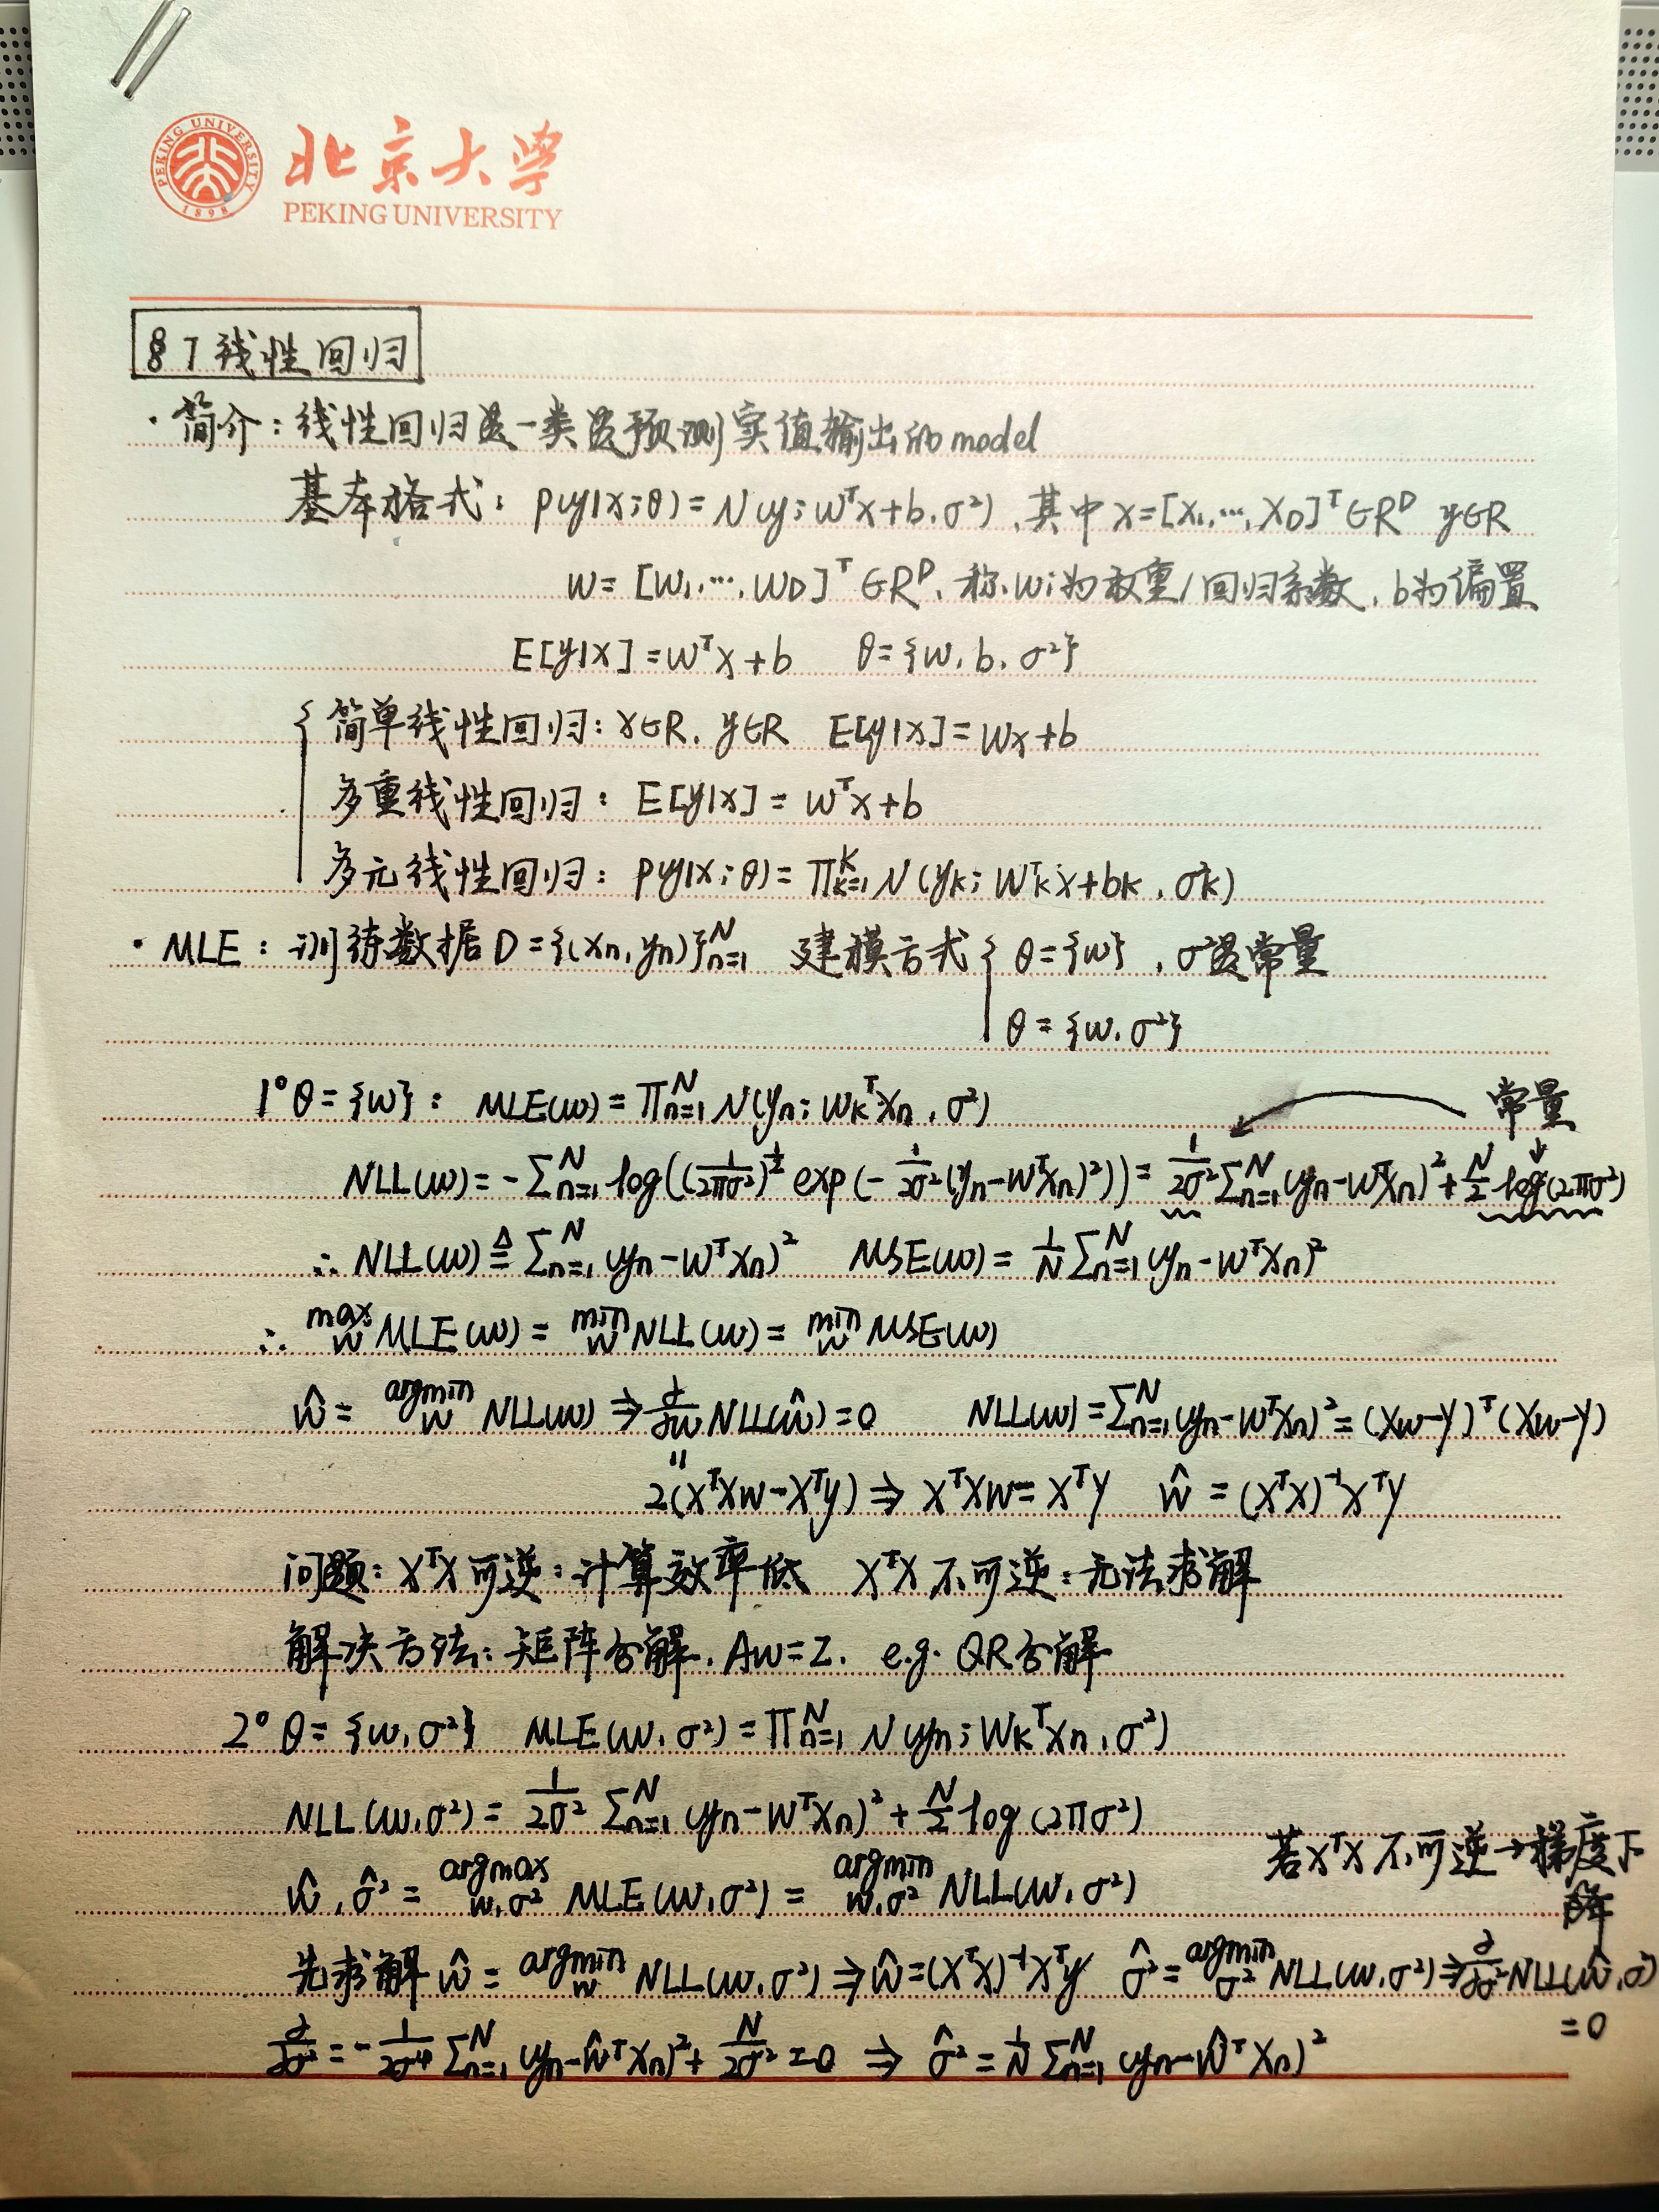 PEKING UNIVERSITY
1898
北京大学
PEKING UNIVERSITY
§7 线性回归
· 简介：线性回归是一类是预测实值输出的model
基本格式：p(y|x;θ)=N(y;wᵀx+b,σ²)，其中x=[x₁,…,x_D]ᵀ∈R^D y∈R
w=[w₁,…,w_D]ᵀ∈R^D，称wᵢ为权重/回归系数，b为偏置
E[y|x]=wᵀx+b θ={w,b,σ²}
{ 简单线性回归：x∈R，y∈R E[y|x]=wx+b
多重线性回归：E[y|x]=wᵀx+b
多元线性回归：p(y|x;θ)=∏_{k=1}^K N(y_k;w_kᵀx+b_k,σ_k²)
· MLE：训练数据D={(x_n,y_n)}_{n=1}^N 建模方式 { θ={w}，σ²是常量
θ={w,σ²}
1° θ={w}：MLE(w)=∏_{n=1}^N N(y_n;w_kᵀx_n,σ²) 常量
NLL(w)=-∑_{n=1}^N log((1/2πσ²)^{1/2} exp(-1/2σ²(y_n-wᵀx_n)²))=1/2σ² ∑_{n=1}^N (y_n-wᵀx_n)²+N/2 log(2πσ²)
∴ NLL(w)≜∑_{n=1}^N (y_n-wᵀx_n)² MSE(w)=1/N ∑_{n=1}^N (y_n-wᵀx_n)²
∴ max_w MLE(w)=min_w NLL(w)=min_w MSE(w)
ŵ=argmin_w NLL(w)⇒∂/∂w NLL(ŵ)=0 NLL(w)=∑_{n=1}^N (y_n-wᵀx_n)²=(Xw-y)ᵀ(Xw-y)
2(XᵀXw-Xᵀy)⇒XᵀXw=Xᵀy ŵ=(XᵀX)⁻¹Xᵀy
问题：XᵀX可逆：计算效率低 XᵀX不可逆：无法求解
解决方法：矩阵分解，Aw=Z. e.g. QR分解
2° θ={w,σ²} MLE(w,σ²)=∏_{n=1}^N N(y_n;w_kᵀx_n,σ²)
NLL(w,σ²)=1/2σ² ∑_{n=1}^N (y_n-wᵀx_n)²+N/2 log(2πσ²)
若XᵀX不可逆→梯度下
降
ŵ,σ̂²=argmax_{w,σ²} MLE(w,σ²)=argmin_{w,σ²} NLL(w,σ²)
先求解ŵ=argmin_w NLL(w,σ²)⇒ŵ=(XᵀX)⁻¹Xᵀy σ̂²=argmin_{σ²} NLL(w,σ²)⇒∂/∂σ² NLL(ŵ,σ²)
=0
∂/∂σ²=-1/2σ⁴ ∑_{n=1}^N (y_n-ŵᵀx_n)²+N/2σ²=0 ⇒ σ̂²=1/N ∑_{n=1}^N (y_n-ŵᵀx_n)²